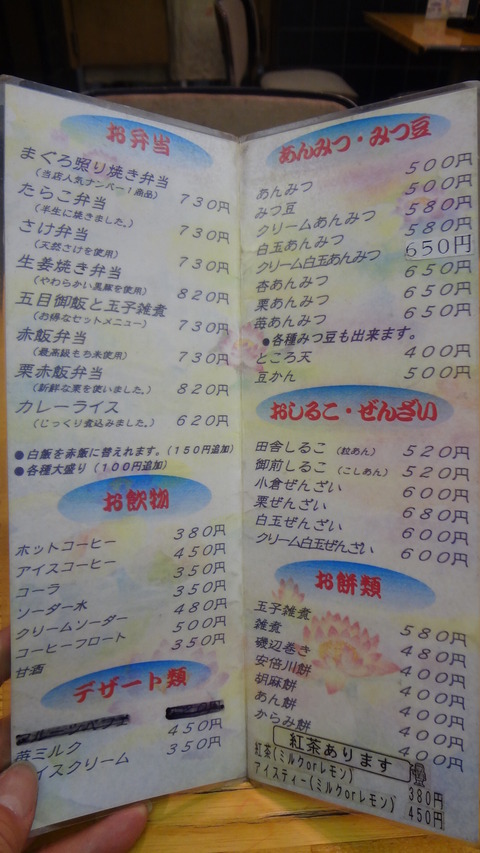 お弁当
まぐろ照り焼き弁当 730円
(当店人気ナンバー1商品)
たらこ弁当 730円
(半生に焼きました。)
さけ弁当 730円
(天然さけを使用)
生姜焼き弁当 820円
(やわらかい黒豚を使用)
五目御飯と玉子雑煮 730円
(お得なセットメニュー)
赤飯弁当 730円
(最高級もち米使用)
栗赤飯弁当 820円
(新鮮な栗を使いました。)
カレーライス 620円
(じっくり煮込みました。)
●白飯を赤飯に替えれます。(150円追加)
●各種大盛り(100円追加)
お飲物
ホットコーヒー 380円
アイスコーヒー 450円
コーラ 350円
ソーダー水 350円
クリームソーダー 480円
コーヒーフロート 500円
甘酒 350円
デザート類
苺ミルク 450円
イスクリーム 350円
あんみつ・みつ豆
あんみつ 500円
みつ豆 500円
クリームあんみつ 580円
白玉あんみつ 580円
クリーム白玉あんみつ 650円
杏あんみつ 650円
栗あんみつ 650円
苺あんみつ 650円
●各種みつ豆も出来ます。
ところ天 400円
豆かん 500円
おしるこ・ぜんざい
田舎しるこ (粒あん) 520円
御前しるこ (こしあん) 520円
小倉ぜんざい 600円
栗ぜんざい 680円
白玉ぜんざい 600円
クリーム白玉ぜんざい 600円
お餅類
玉子雑煮 580円
雑煮 480円
磯辺巻き 400円
安倍川餅 400円
胡麻餅 400円
あん餅 400円
からみ餅 400円
紅茶あります
紅茶(ミルクorレモン) 380円
アイスティー(ミルクorレモン) 450円